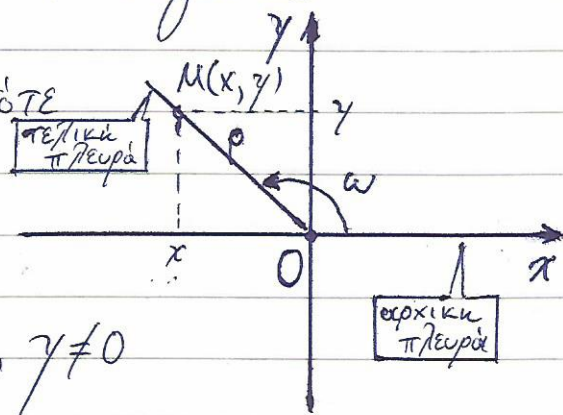 y
M(x, y)
ότε
τελική
πλευρά
y
ρ
ω
x
O
x
αρχική
πλευρά
, y≠0